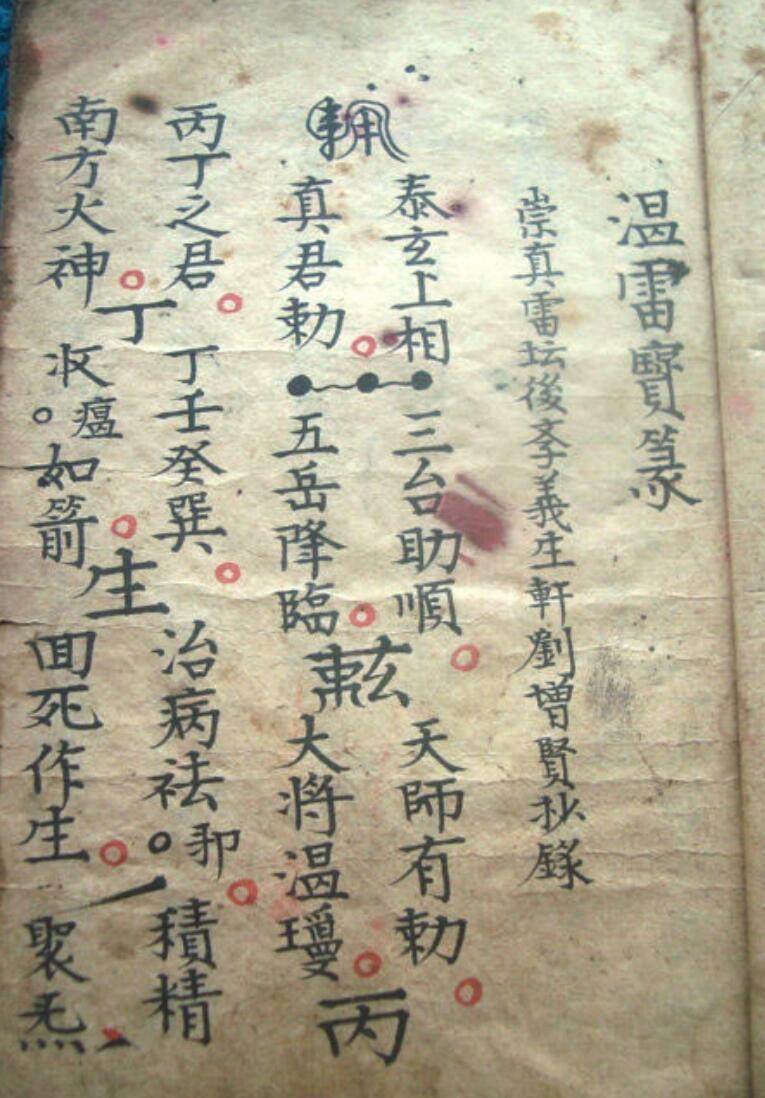 温雷寶篆
崇真雷坛後孝義生軒劉增賢抄錄
泰玄上相
真君勅
三台助順
五岳降臨
天師有勅
大将温瓊
丙
丙丁之君
南方火神
丁
丁壬癸巽
収瘟如箭
生
治病祛邪
回死作生
一
積精
聚炁